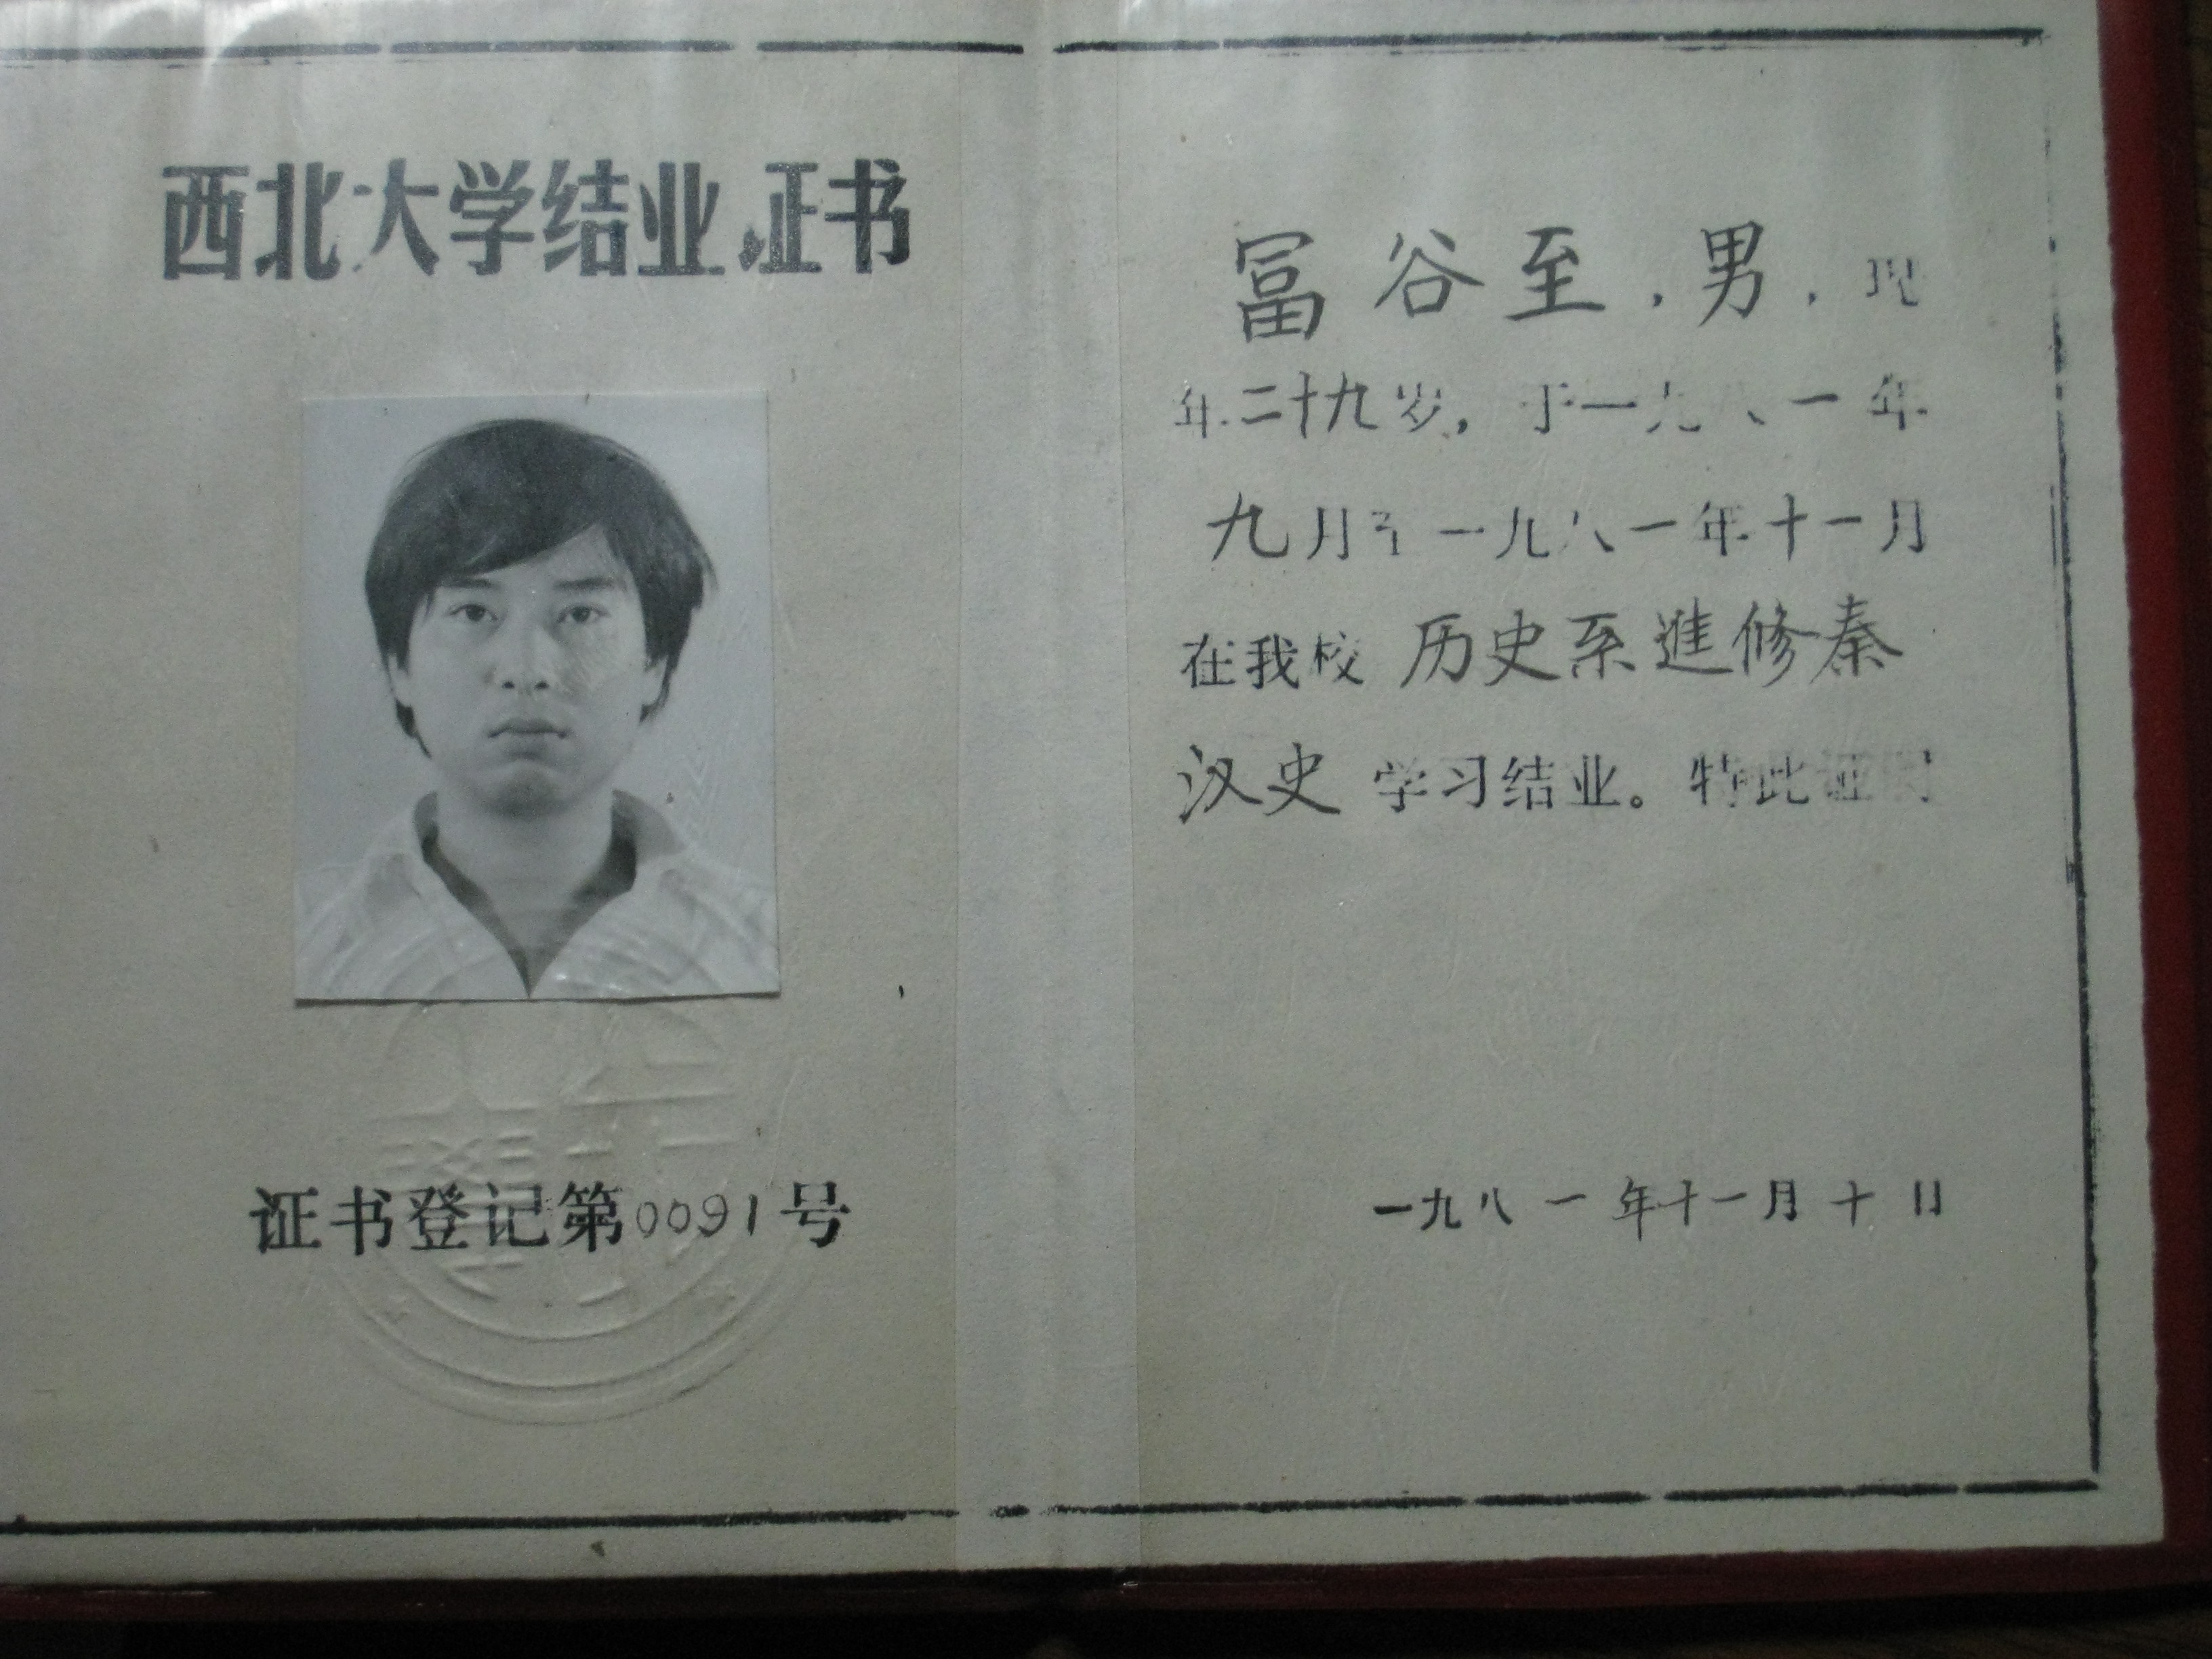 西北大学结业证书
证书登记第0091号
冨谷至，男，现
年二十九岁，于一九八一年
九月至一九八一年十一月
在我校历史系進修秦
汉史学习结业。特此证明
一九八一年十一月十日